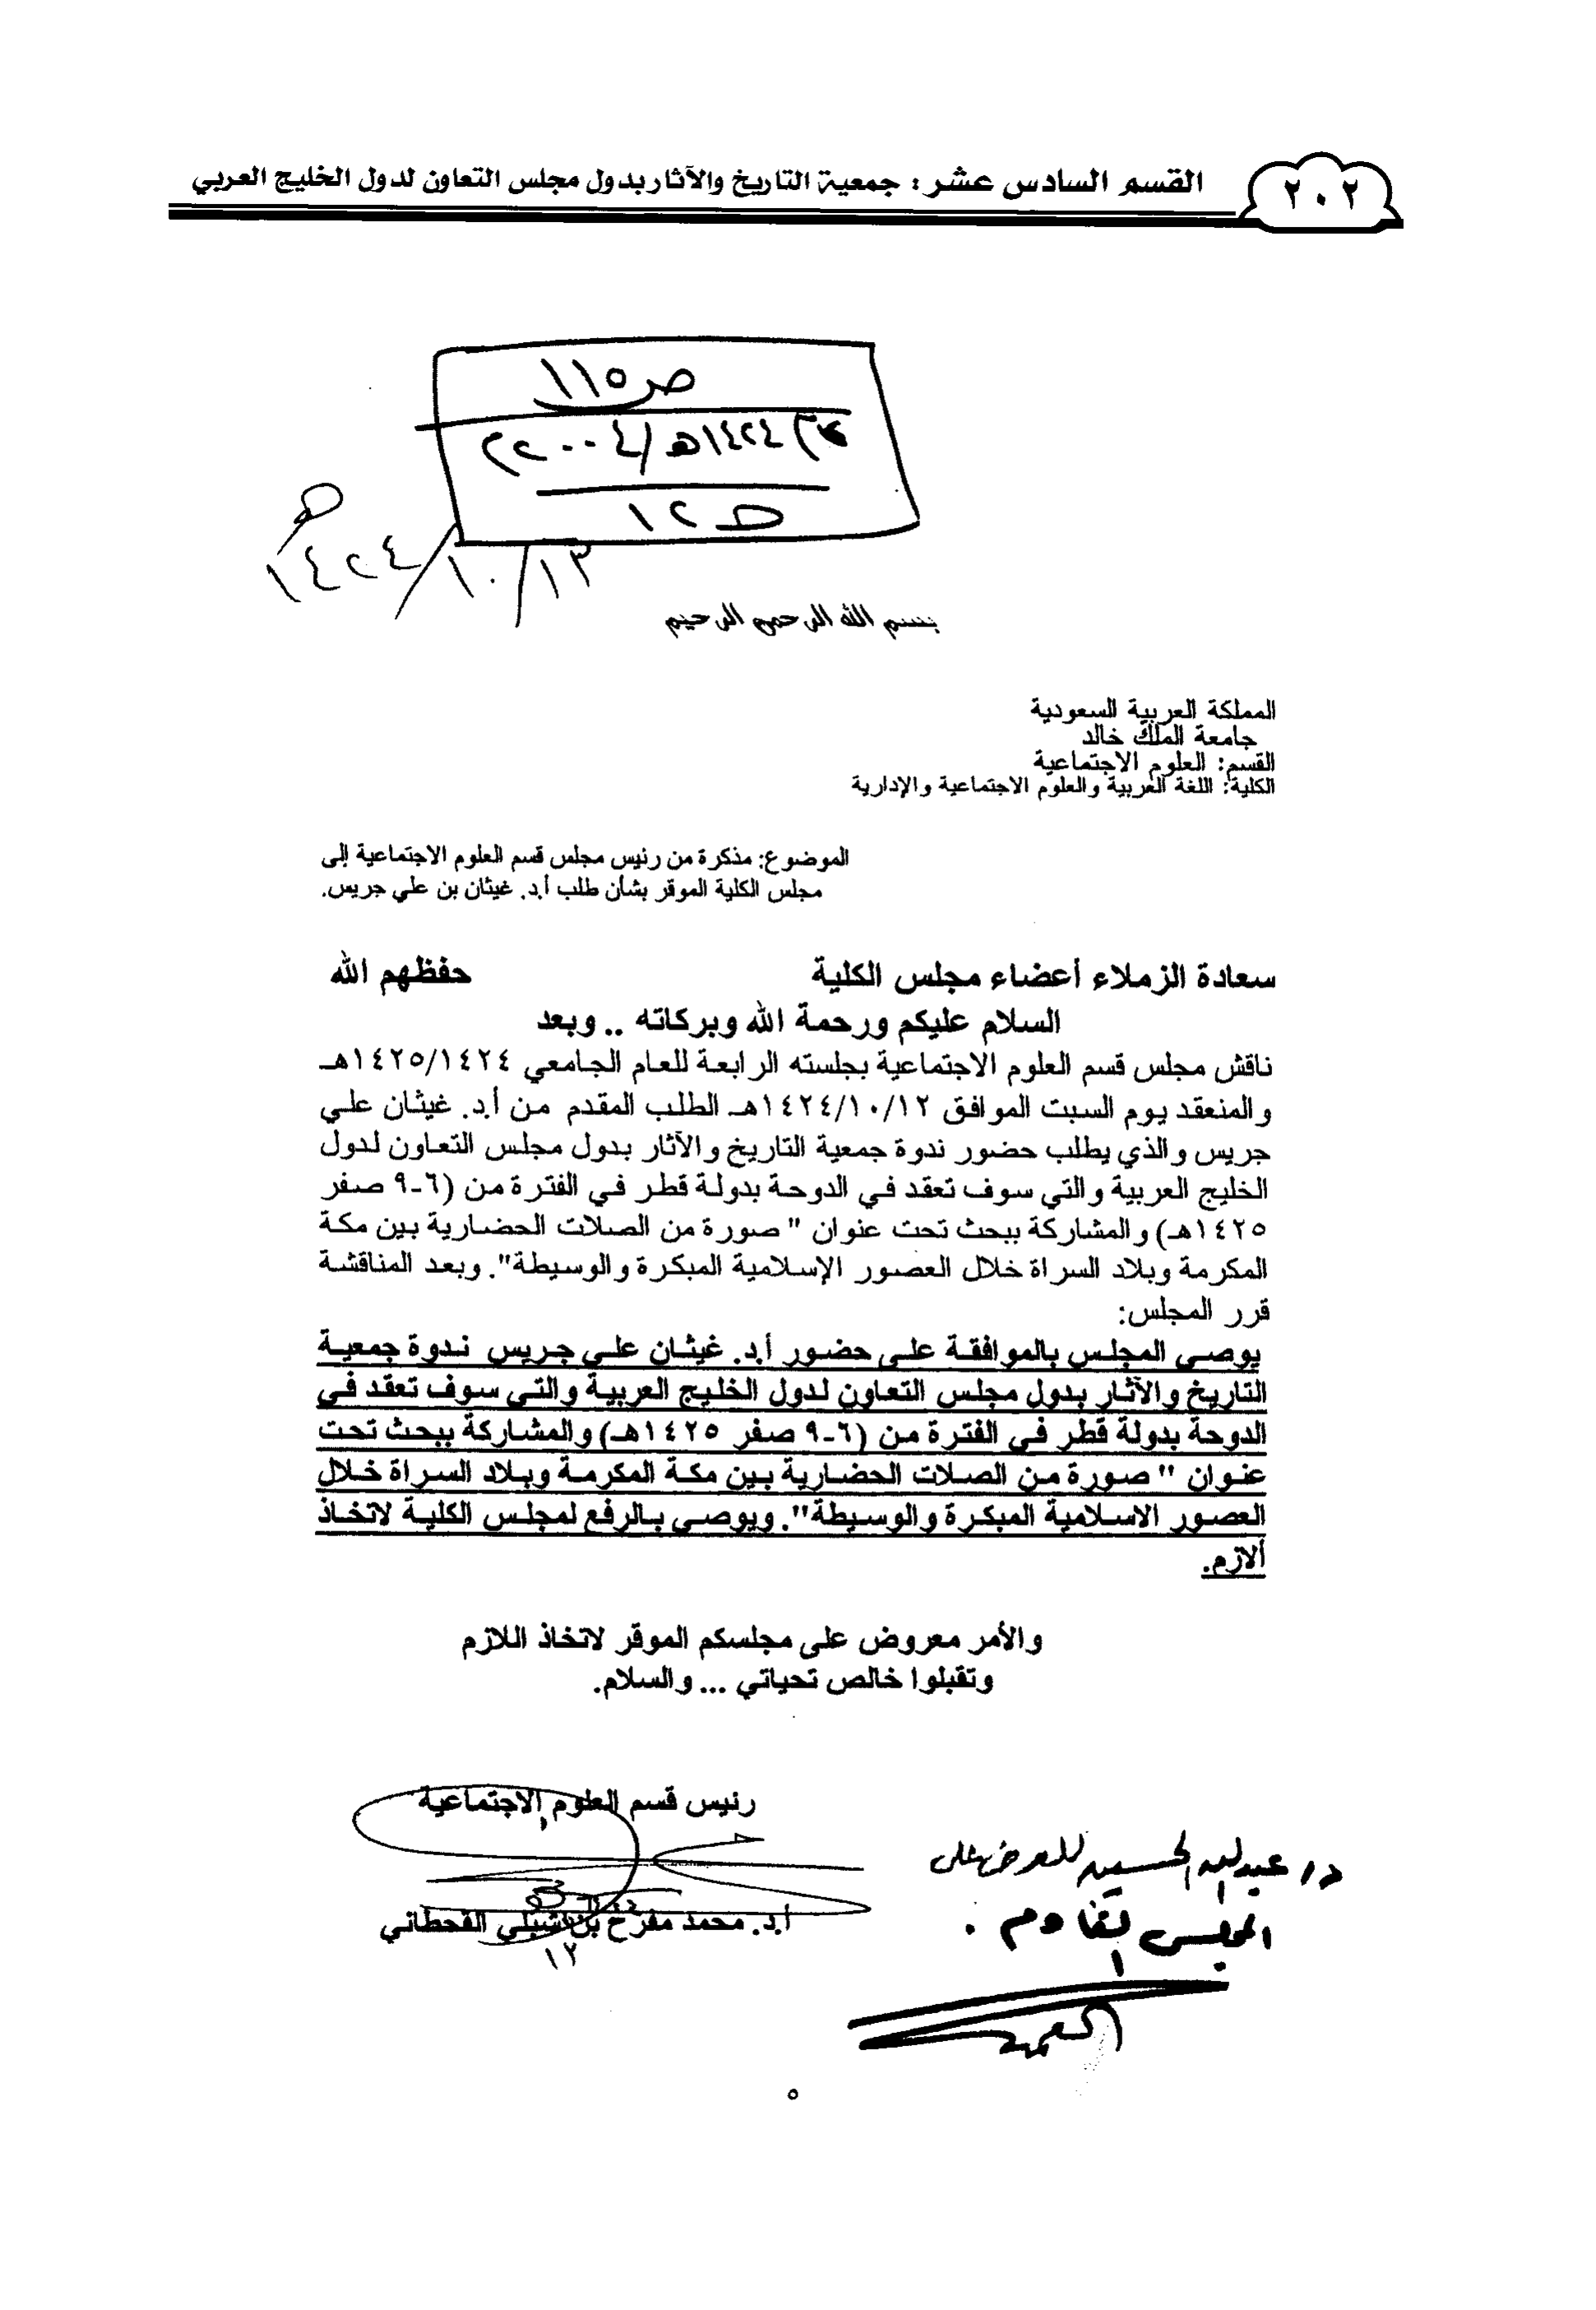 ٢٠٢
القسم السادس عشر: جمعية التاريخ والآثار بدول مجلس التعاون لدول الخليج العربي
ص ١١٥
١٤٢٤هـ/٢٢٠٠٤
ط ١٢
١٤٢٤/١٠/١٣هـ
بسم الله الرحمن الرحيم
المملكة العربية السعودية
جامعة الملك خالد
القسم: العلوم الاجتماعية
الكلية: اللغة العربية والعلوم الاجتماعية والإدارية
الموضوع: مذكرة من رئيس مجلس قسم العلوم الاجتماعية إلى
مجلس الكلية الموقر بشأن طلب أ.د. غيثان بن علي جريس.
سعادة الزملاء أعضاء مجلس الكلية حفظهم الله
السلام عليكم ورحمة الله وبركاته .. وبعد
ناقش مجلس قسم العلوم الاجتماعية بجلسته الرابعة للعام الجامعي ١٤٢٥/١٤٢٤هـ
والمنعقد يوم السبت الموافق ١٤٢٤/١٠/١٢هـ الطلب المقدم من أ.د. غيثان علي
جريس والذي يطلب حضور ندوة جمعية التاريخ والآثار بدول مجلس التعاون لدول
الخليج العربية والتي سوف تعقد في الدوحة بدولة قطر في الفترة من (٦-٩ صفر
١٤٢٥هـ) والمشاركة ببحث تحت عنوان " صورة من الصلات الحضارية بين مكة
المكرمة وبلاد السراة خلال العصور الإسلامية المبكرة والوسيطة". وبعد المناقشة
قرر المجلس:
يوصي المجلس بالموافقة على حضور أ.د. غيثان علي جريس ندوة جمعية
التاريخ والآثار بدول مجلس التعاون لدول الخليج العربية والتي سوف تعقد في
الدوحة بدولة قطر في الفترة من (٦-٩ صفر ١٤٢٥هـ) والمشاركة ببحث تحت
عنوان " صورة من الصلات الحضارية بين مكة المكرمة وبلاد السراة خلال
العصور الاسلامية المبكرة والوسيطة". ويوصي بالرفع لمجلس الكلية لاتخاذ
ألازم.
والأمر معروض على مجلسكم الموقر لاتخاذ اللازم
وتقبلوا خالص تحياتي ... والسلام.
رئيس قسم العلوم الاجتماعية
أ.د. محمد مفرح بن شبلي القحطاني
١٢
د/ عبدالله الحسين للعرض على
المجلس القادم .
٥